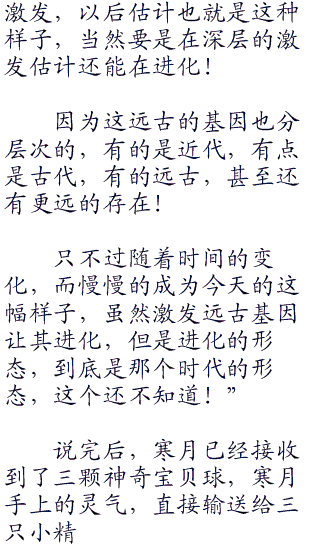 激发，以后估计也就是这种
样子，当然要是在深层的激
发估计还能在进化！
因为这远古的基因也分
层次的，有的是近代，有点
是古代，有的远古，甚至还
有更远的存在！
只不过随着时间的变
化，而慢慢的成为今天的这
幅样子，虽然激发远古基因
让其进化，但是进化的形
态，到底是那个时代的形
态，这个还不知道！”
说完后，寒月已经接收
到了三颗神奇宝贝球，寒月
手上的灵气，直接输送给三
只小精